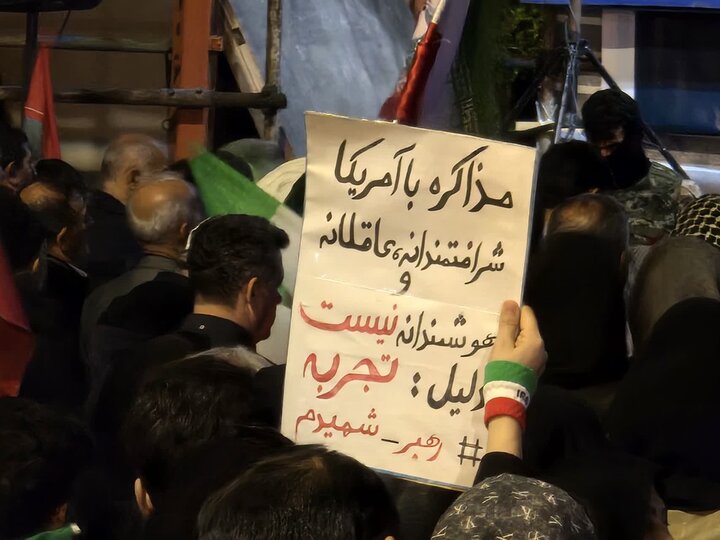 مذاکره با آمریکا
شرافتمندانه، عاقلانه
و
هوشمندانه نیست
دلیل: تجربه
#رهبر_شهیدم